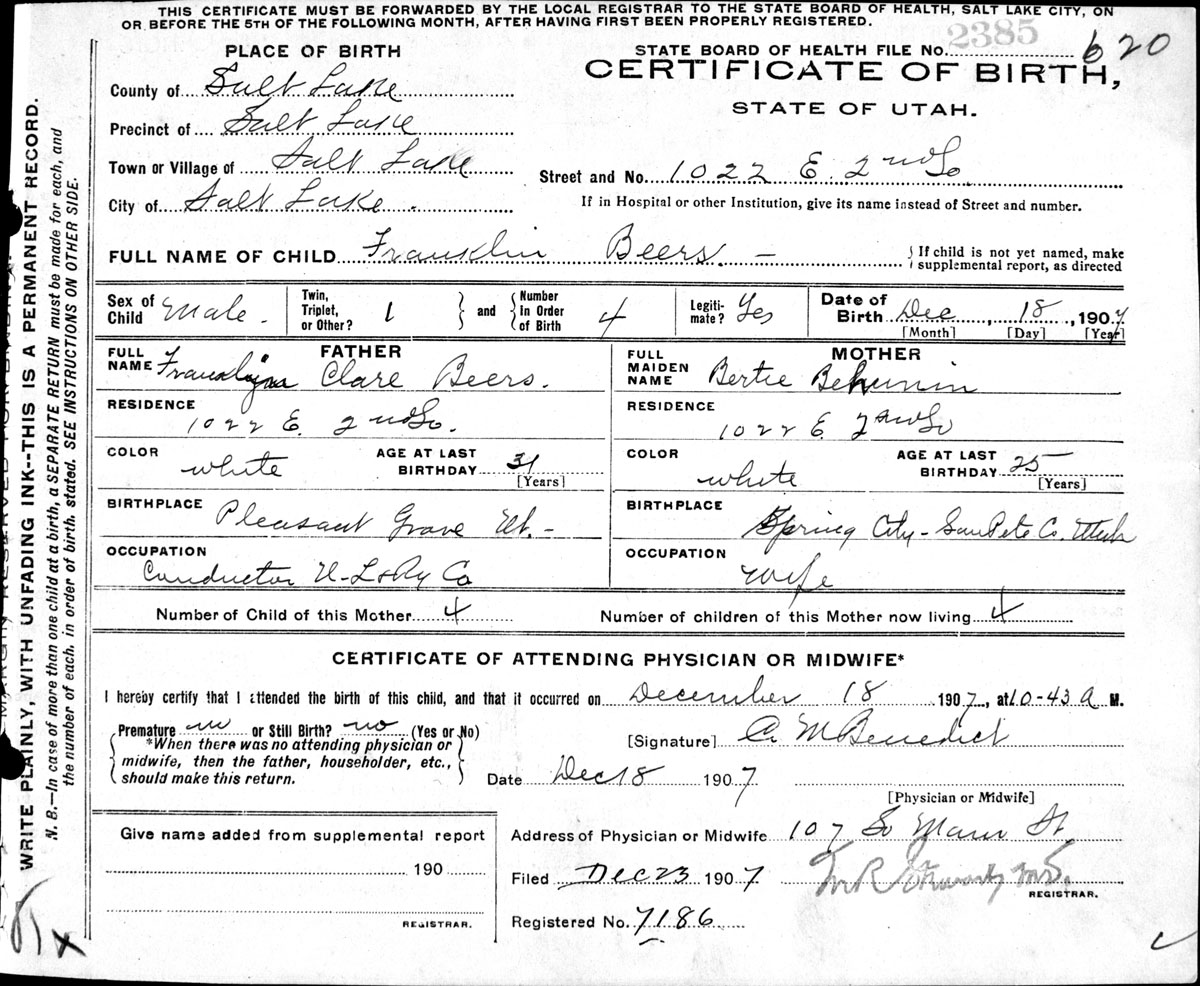 THIS CERTIFICATE MUST BE FORWARDED BY THE LOCAL REGISTRAR TO THE STATE BOARD OF HEALTH, SALT LAKE CITY, ON
OR BEFORE THE 5TH OF THE FOLLOWING MONTH, AFTER HAVING FIRST BEEN PROPERLY REGISTERED.
PLACE OF BIRTH
STATE BOARD OF HEALTH FILE No. 2385 620
CERTIFICATE OF BIRTH,
STATE OF UTAH.
County of Salt Lake
Precinct of Salt Lake
Town or Village of Salt Lake
Street and No. 1022 E. 2nd So.
City of Salt Lake.
If in Hospital or other Institution, give its name instead of Street and number.
FULL NAME OF CHILD Franklin Beers. -
If child is not yet named, make
supplemental report, as directed
Sex of Child Male.
Twin, Triplet, or Other? 1
and
Number In Order of Birth 4
Legiti-mate? Yes
Date of Birth Dec, 18, 1907
[Month] [Day] [Year]
FATHER
FULL NAME Clare Beers.
MOTHER
FULL MAIDEN NAME Bertie Behunin
RESIDENCE
1022 E. 2nd So.
RESIDENCE
1022 E. 2nd So
COLOR
white
AGE AT LAST BIRTHDAY 31
[Years]
COLOR
white
AGE AT LAST BIRTHDAY 25
[Years]
BIRTHPLACE
Pleasant Grove Ut.-
BIRTHPLACE
Spring City - SanPete Co. Utah
OCCUPATION
Conductor U-L&Ry Co
OCCUPATION
wife
Number of Child of this Mother 4
Number of children of this Mother now living 4
CERTIFICATE OF ATTENDING PHYSICIAN OR MIDWIFE*
I hereby certify that I attended the birth of this child, and that it occurred on December 18 1907, at 10-43 a M.
Premature no or Still Birth? no (Yes or No)
*When there was no attending physician or
midwife, then the father, householder, etc.,
should make this return.
[Signature] C. M Benedict
Date Dec 18 1907
[Physician or Midwife]
Give name added from supplemental report
190
REGISTRAR.
Address of Physician or Midwife 107 So Main St.
Filed Dec 23 1907
REGISTRAR.
Registered No. 7186
WRITE PLAINLY, WITH UNFADING INK--THIS IS A PERMANENT RECORD.
N. B.--In case of more than one child at a birth, a SEPARATE RETURN must be made for each, and
the number of each, in order of birth, stated. SEE INSTRUCTIONS ON OTHER SIDE.